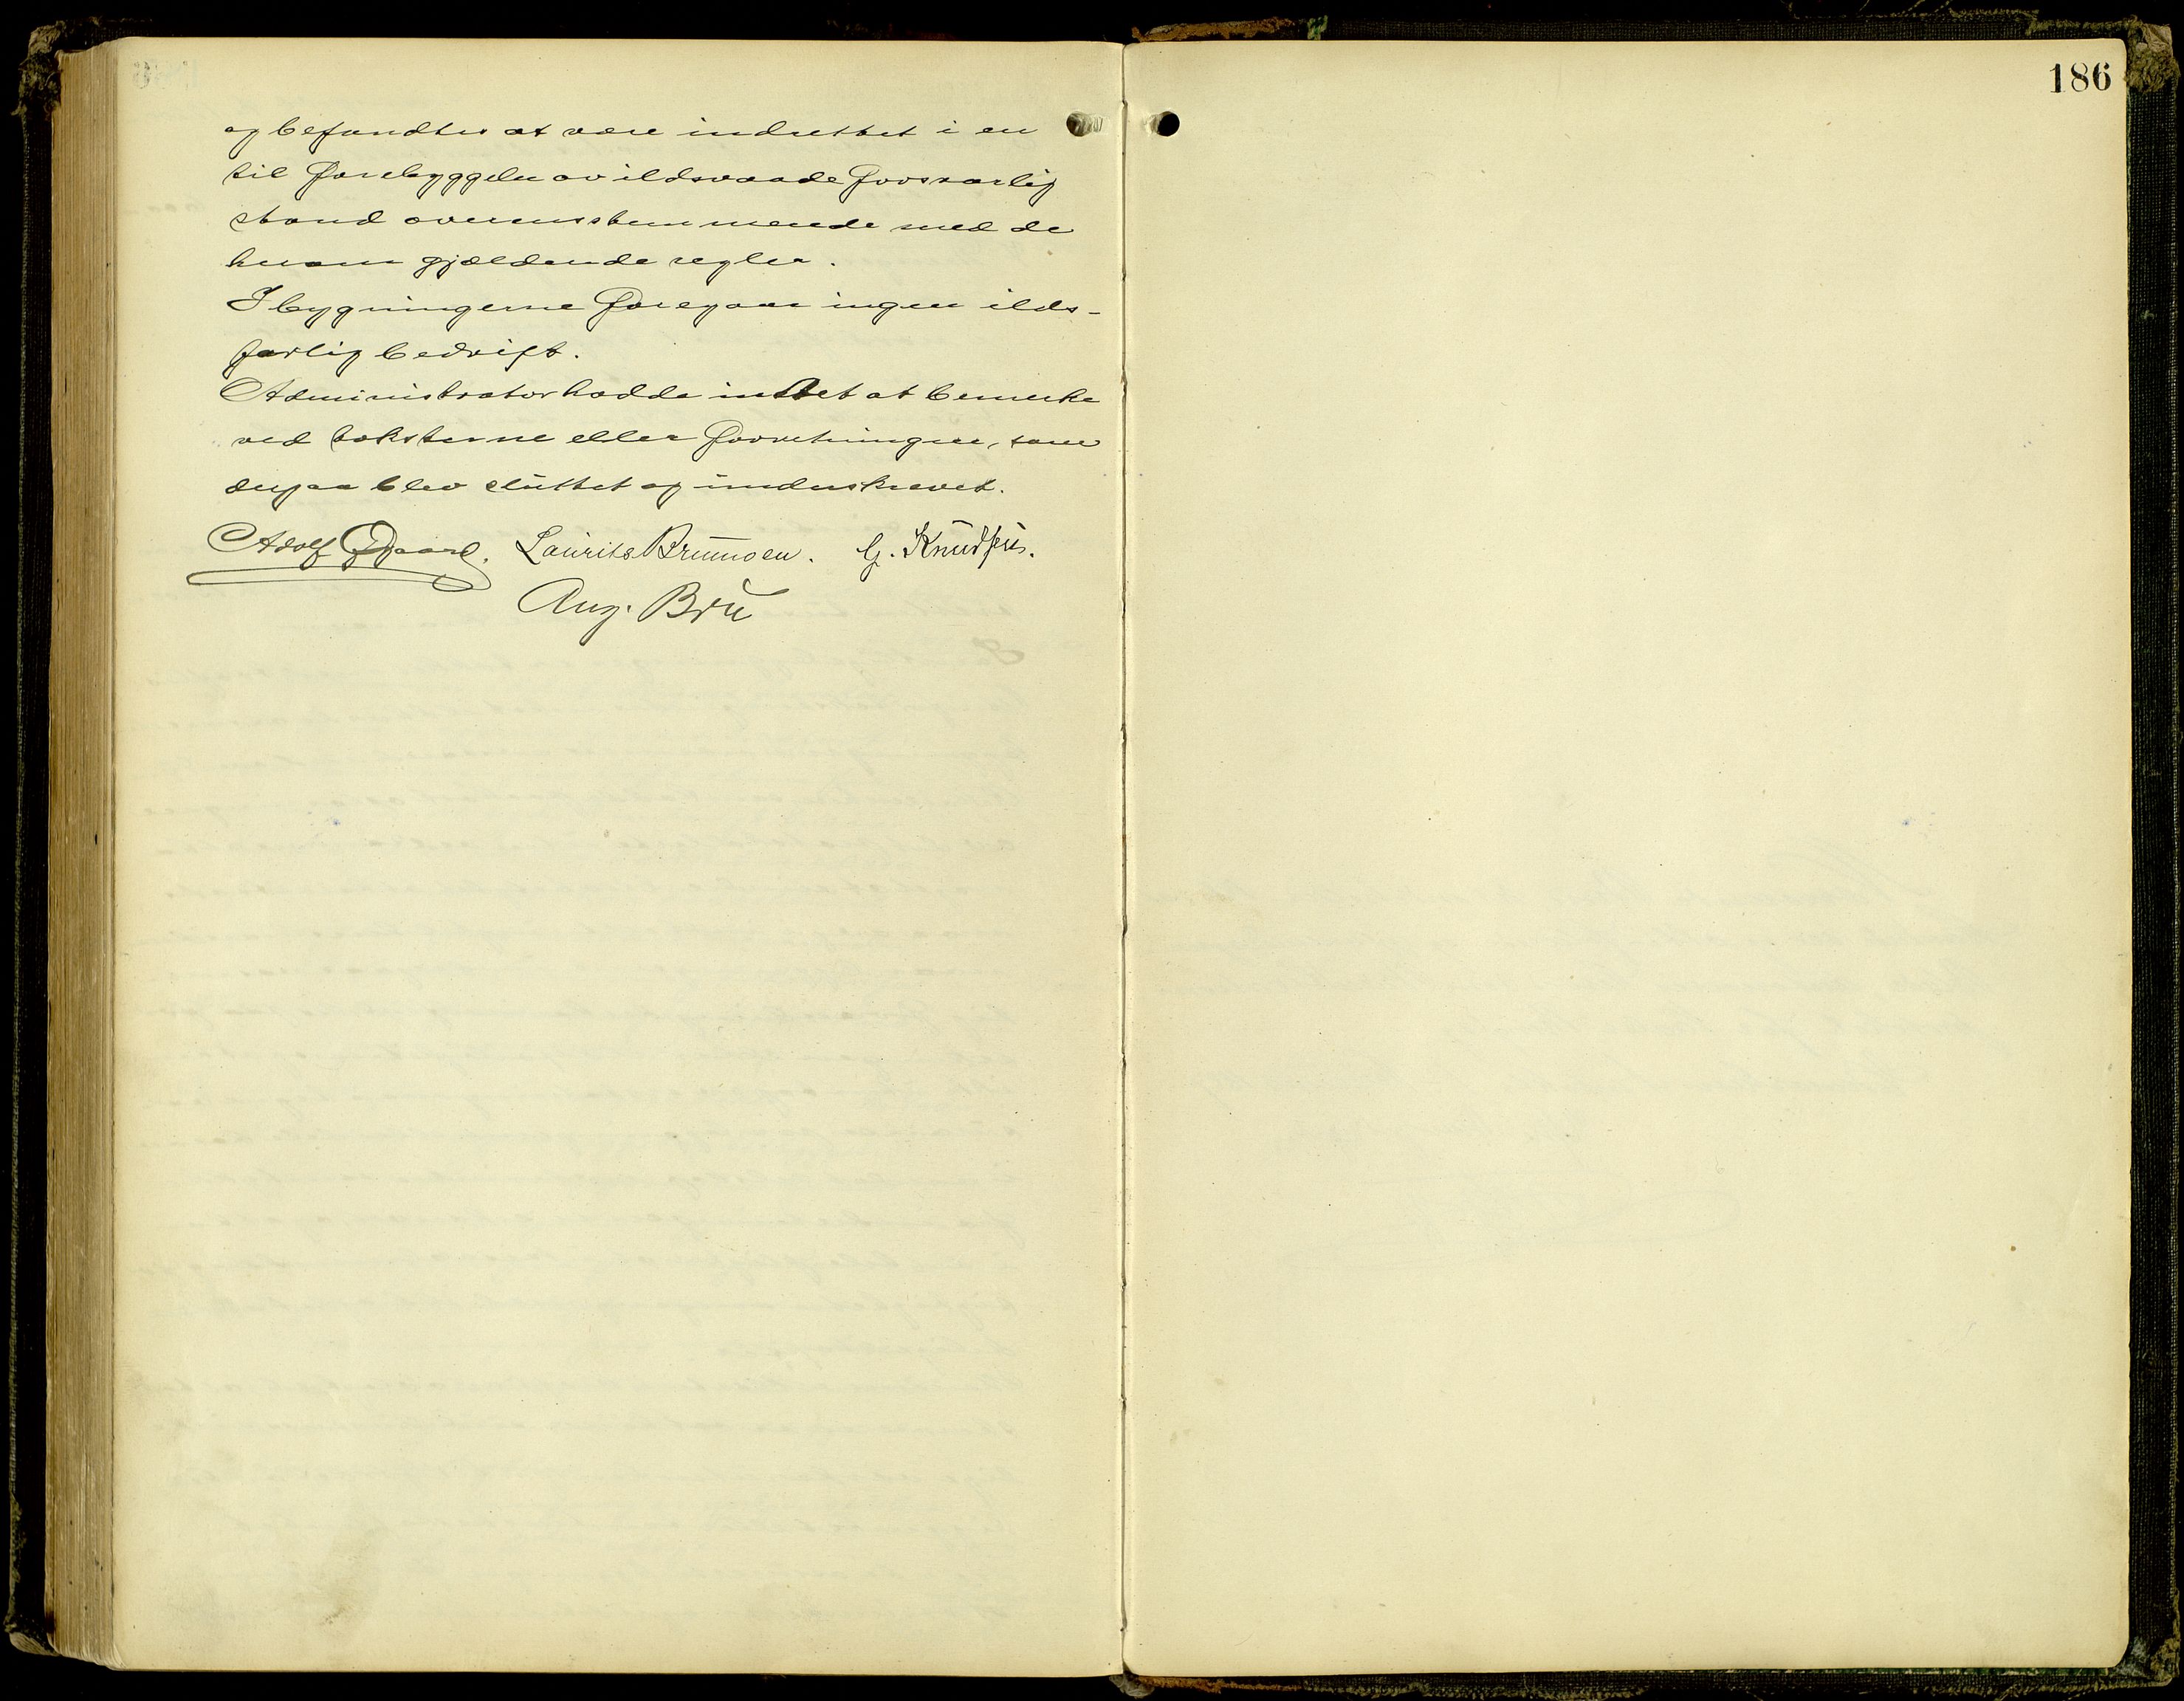 186
og befandtes at være indrettet i en
til forebyggelse av ildsvaade forsvarlig
stand overensstemmende med de
herom gjældende regler.
I bygningerne foregaar ingen ilds-
farlig bedrift.
Administrator hadde intet at bemerke
ved taksterne eller forretningen, som
derpaa blev sluttet og underskrevet.
Adolf Laurits Brunsen. G. Knudsen.
Aug. Bru